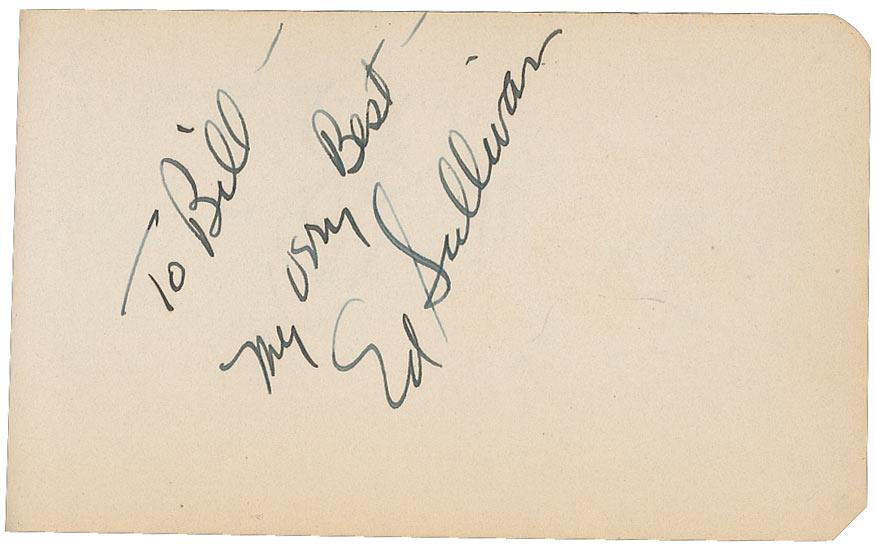 To Bill -
My very Best -
Ed Sullivan